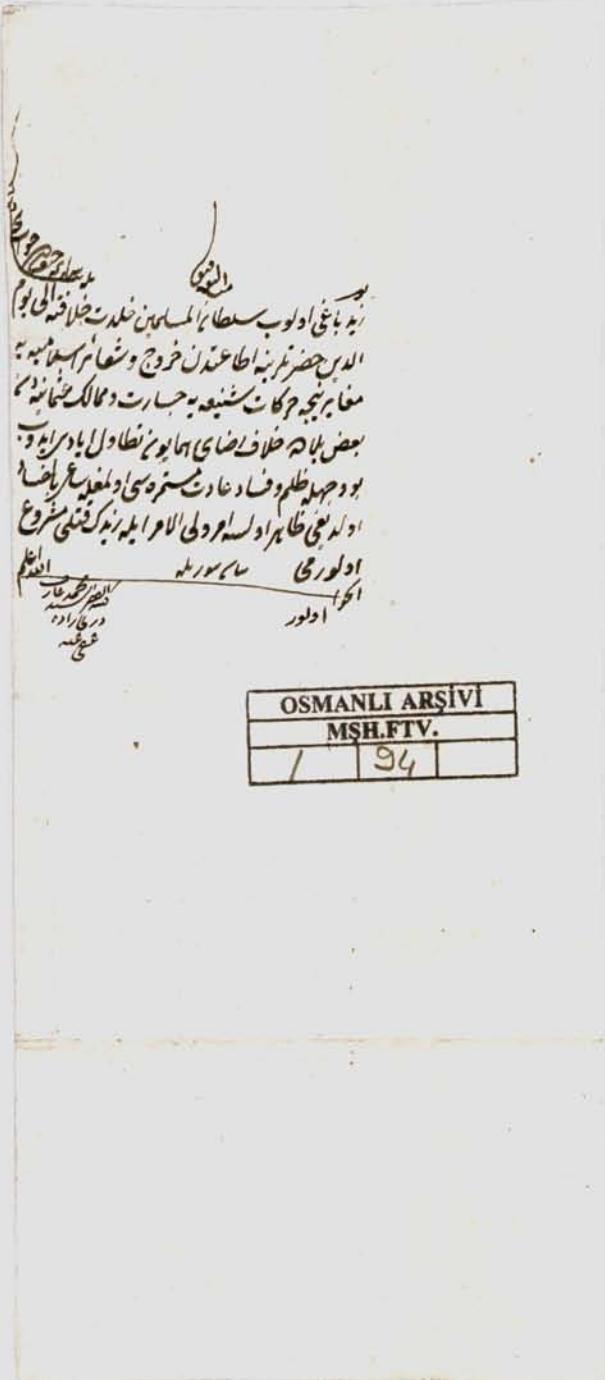 منه التوفيق
زيد باغى اولوب سلطان المسلمين خلدت خلافته الى يوم
الدين حضرتلرينه اطاعتدن خروج و شعائر اسلاميه يه
مغاير نيجه حركات شنيعه يه جسارت و ممالك عثمانيه دن
بعض بلاده خلاف رضاى همايون تطاول ايادى ايدوب
بو وجهله ظلم و فساد عادت مستمره سى اولمغله ساعى بالفساد
اولديغى ظاهر اولسه امر ولى الامر ايله زيدك قتلى مشروع
اولورمى
الله اعلم
الجواب
اولور
درى زاده
عفى عنه
OSMANLI ARŞİVİ
MŞH.FTV.
1 94